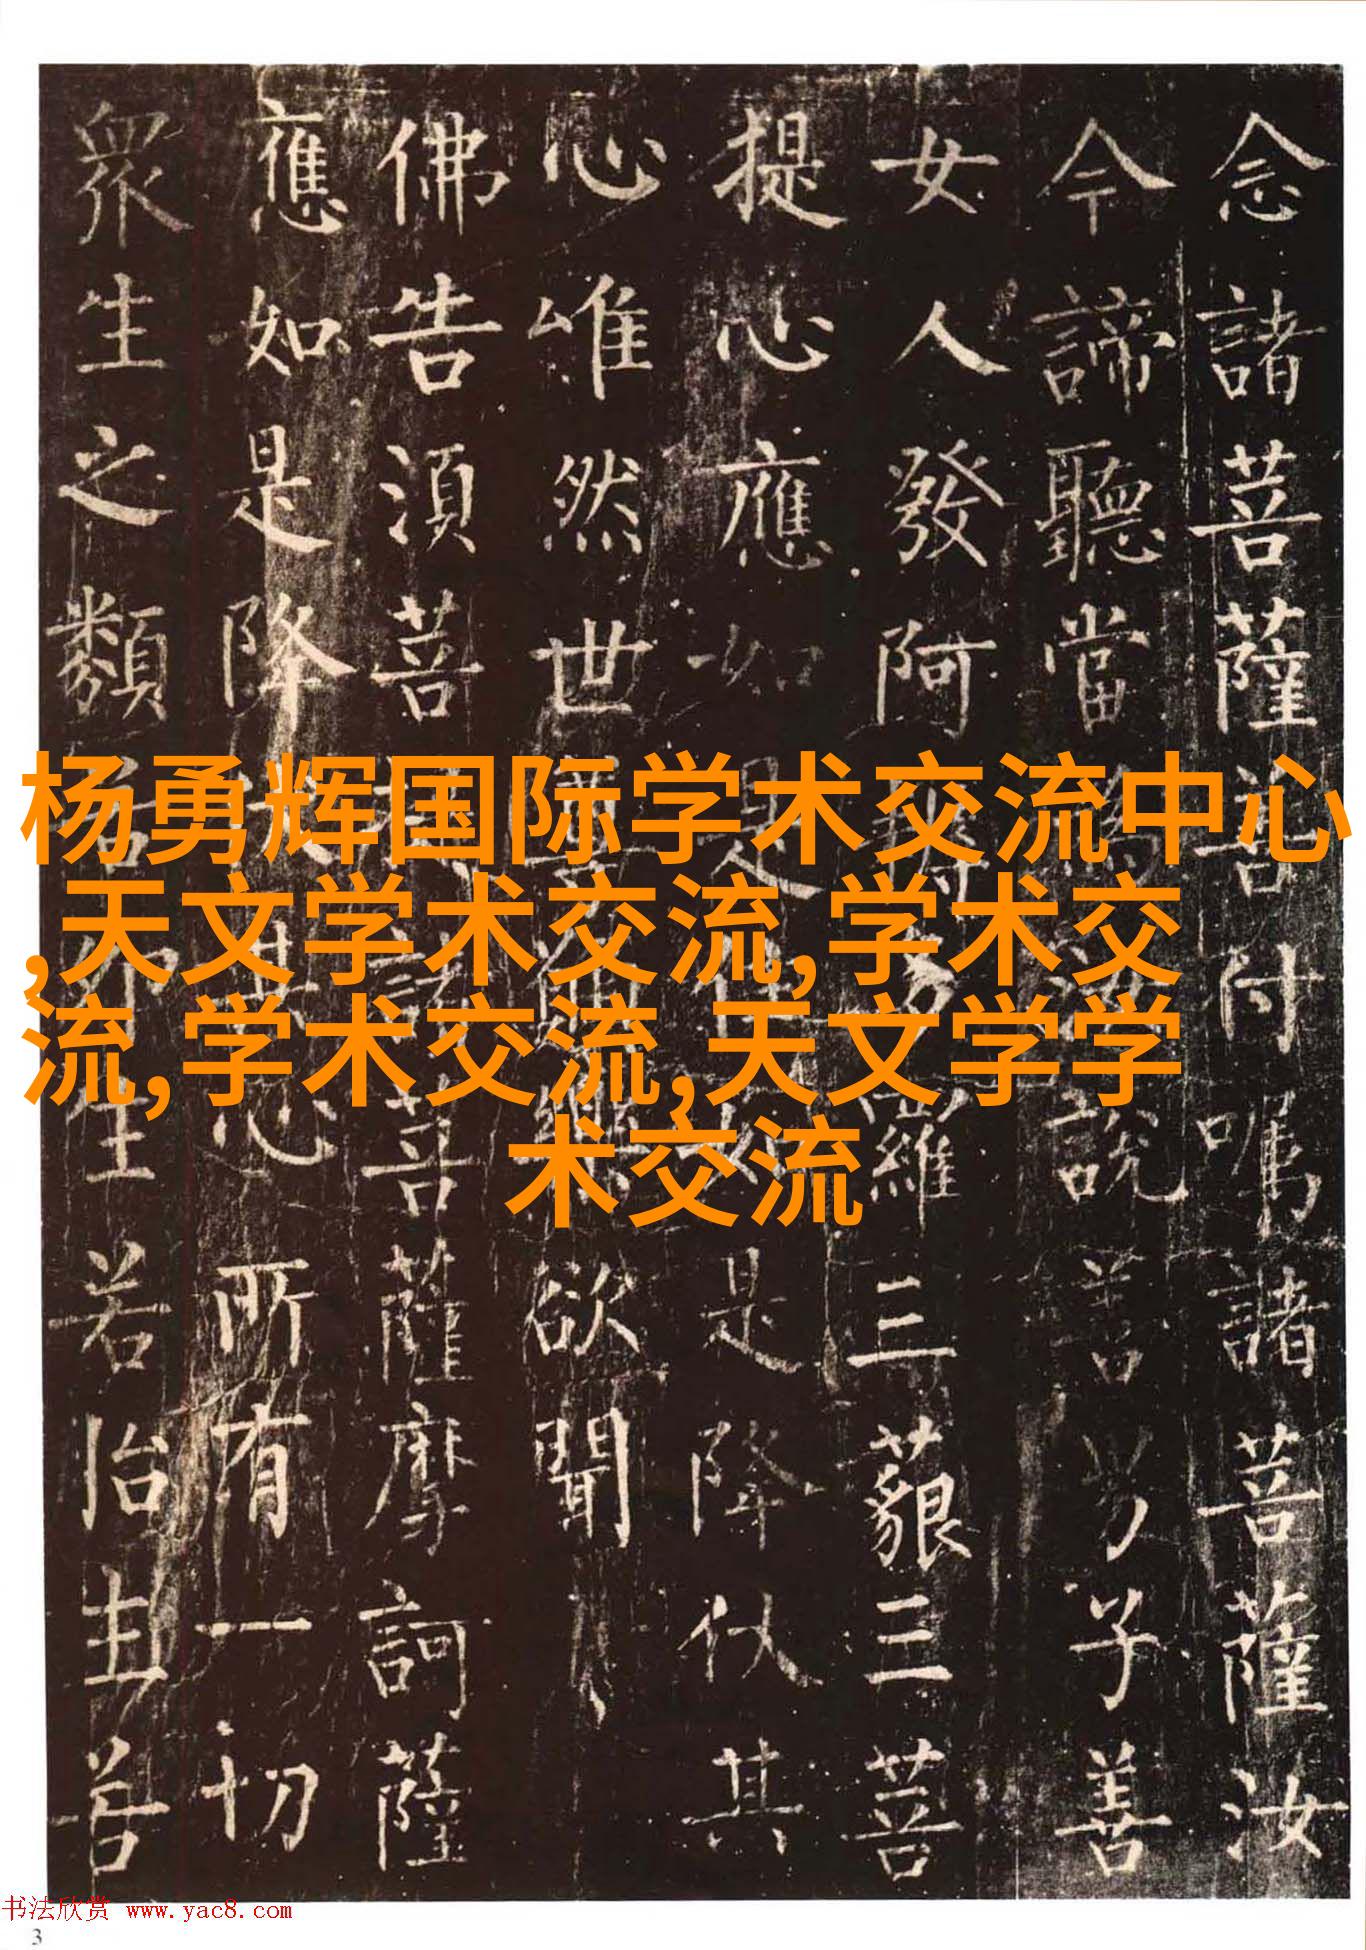 杨勇辉国际学术交流中心
,天文学术交流,学术交
流,学术交流,天文学学
术交流
念諸菩薩善付嘱諸菩薩汝
今諦聽當說善男子善
女人發阿羅三藐三菩
提心應如是是降伏其
心唯然世欲聞
佛告須菩諸菩薩摩訶薩
應如是降心所有一切
眾生之類生若胎生若
书法欣赏 www.yac8.com
3